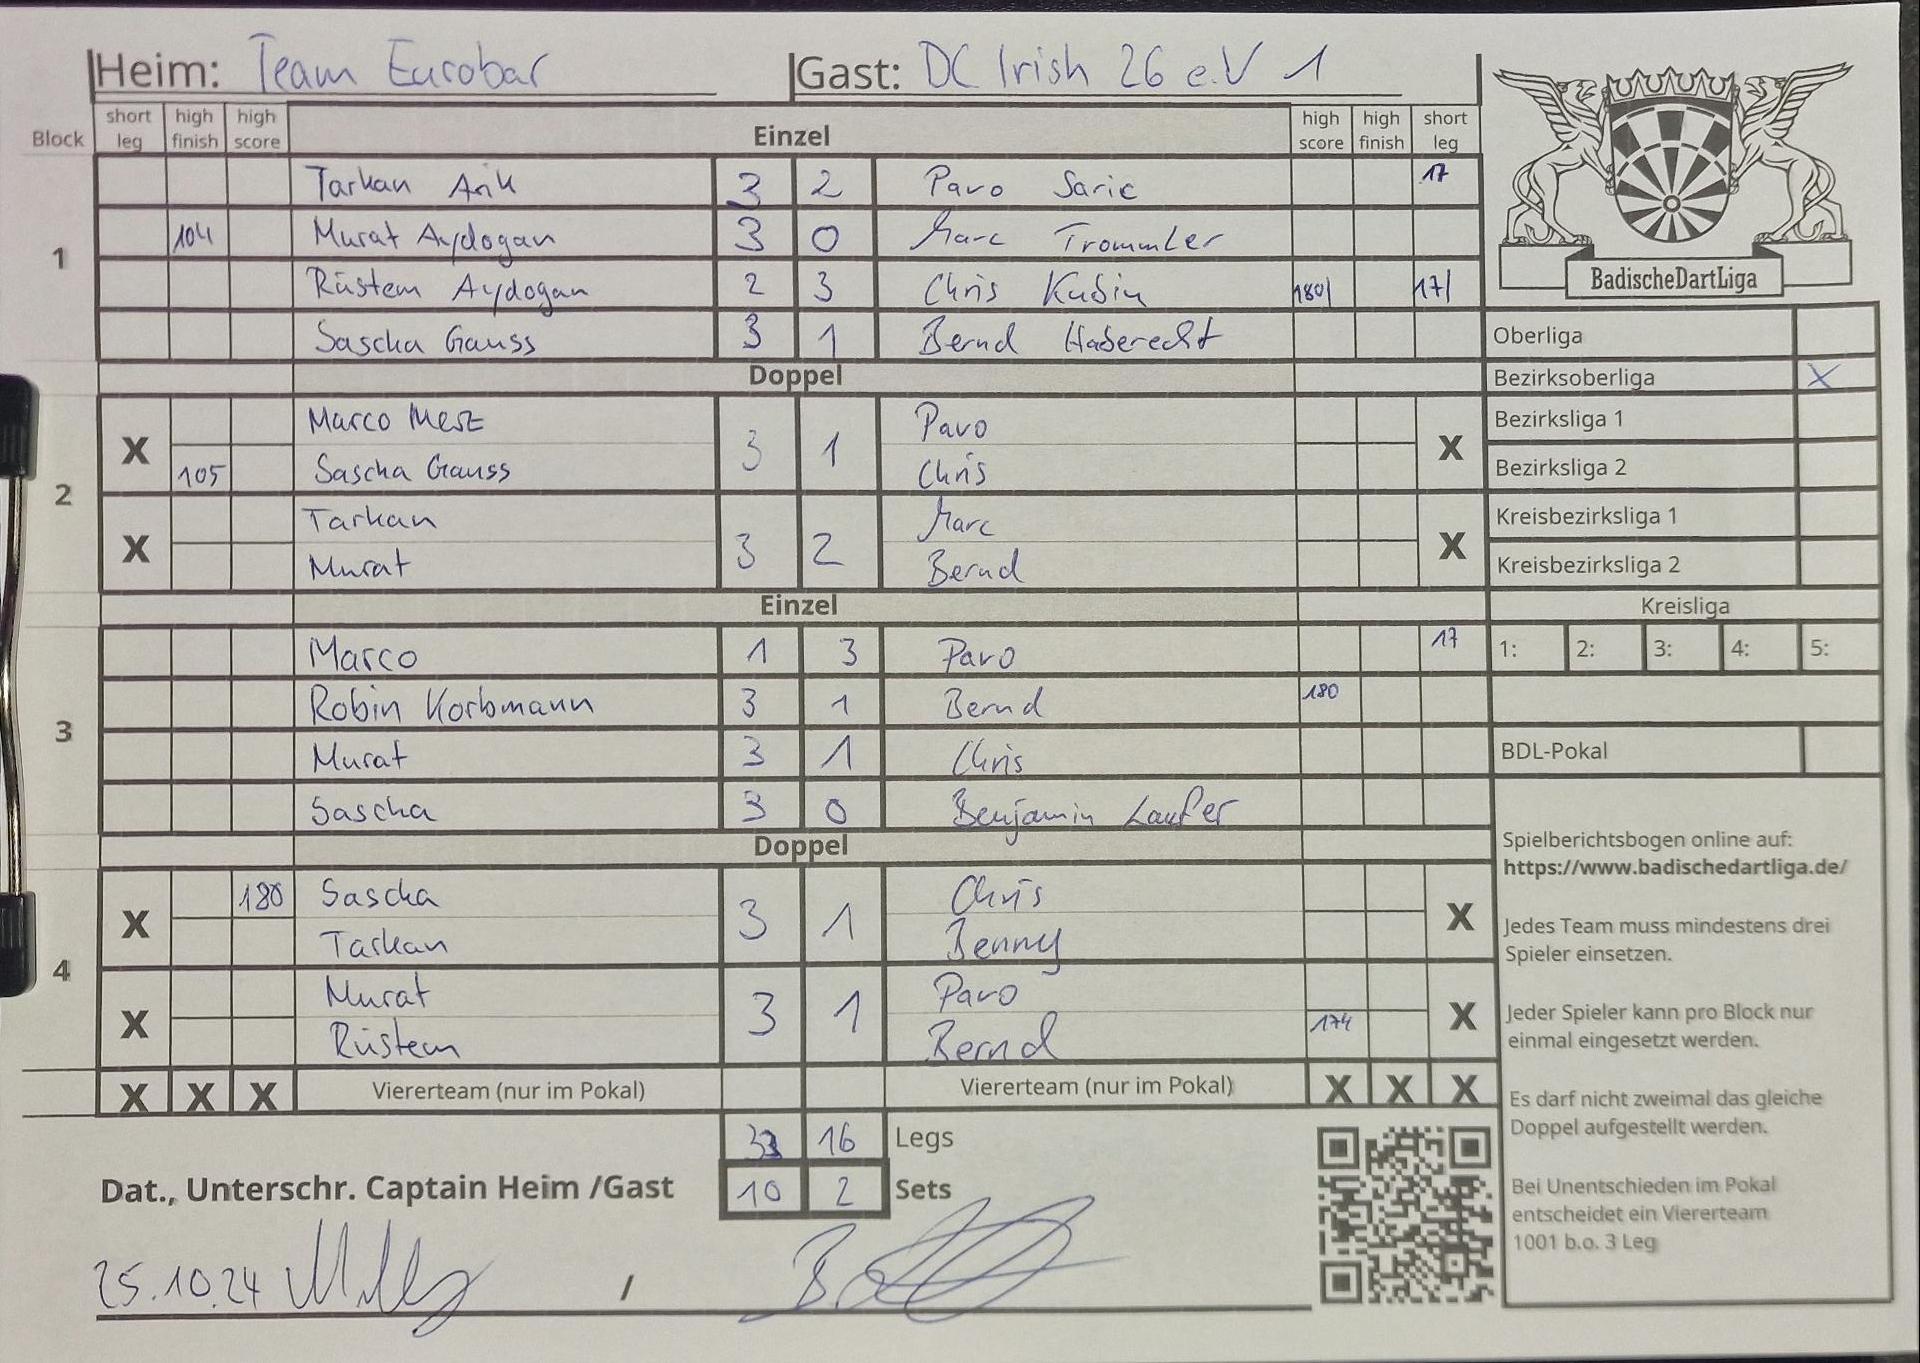 Heim: Team Eurobar Gast: DC Irish 26 e.V 1
Block short leg high finish high score Einzel high score high finish short leg
BadischeDartLiga
1
Tarkan Arik 3 2 Pavo Saric 17
104 Murat Aydogan 3 0 Marc Trommler
Rüstem Aydogan 2 3 Chris Kubin 180/ 17/
Sascha Gauss 3 1 Bernd Haberecht
Doppel
2
X Marco Merz 3 1 Pavo X
105 Sascha Gauss Chris
X Tarkan 3 2 Marc X
Murat Bernd
Einzel
3
Marco 1 3 Pavo 17
Robin Korbmann 3 1 Bernd 180
Murat 3 1 Chris
Sascha 3 0 Benjamin Laufer
Doppel
4
X 180 Sascha 3 1 Chris X
Tarkan Benny
X Murat 3 1 Pavo X
Rüstem Bernd 174
X X X Viererteam (nur im Pokal) Viererteam (nur im Pokal) X X X
33 16 Legs
Dat., Unterschr. Captain Heim /Gast 10 2 Sets
25.10.24 /
Oberliga
Bezirksoberliga X
Bezirksliga 1
Bezirksliga 2
Kreisbezirksliga 1
Kreisbezirksliga 2
Kreisliga
1: 2: 3: 4: 5:
BDL-Pokal
Spielberichtsbogen online auf:
https://www.badischedartliga.de/
Jedes Team muss mindestens drei
Spieler einsetzen.
Jeder Spieler kann pro Block nur
einmal eingesetzt werden.
Es darf nicht zweimal das gleiche
Doppel aufgestellt werden.
Bei Unentschieden im Pokal
entscheidet ein Viererteam
1001 b.o. 3 Leg